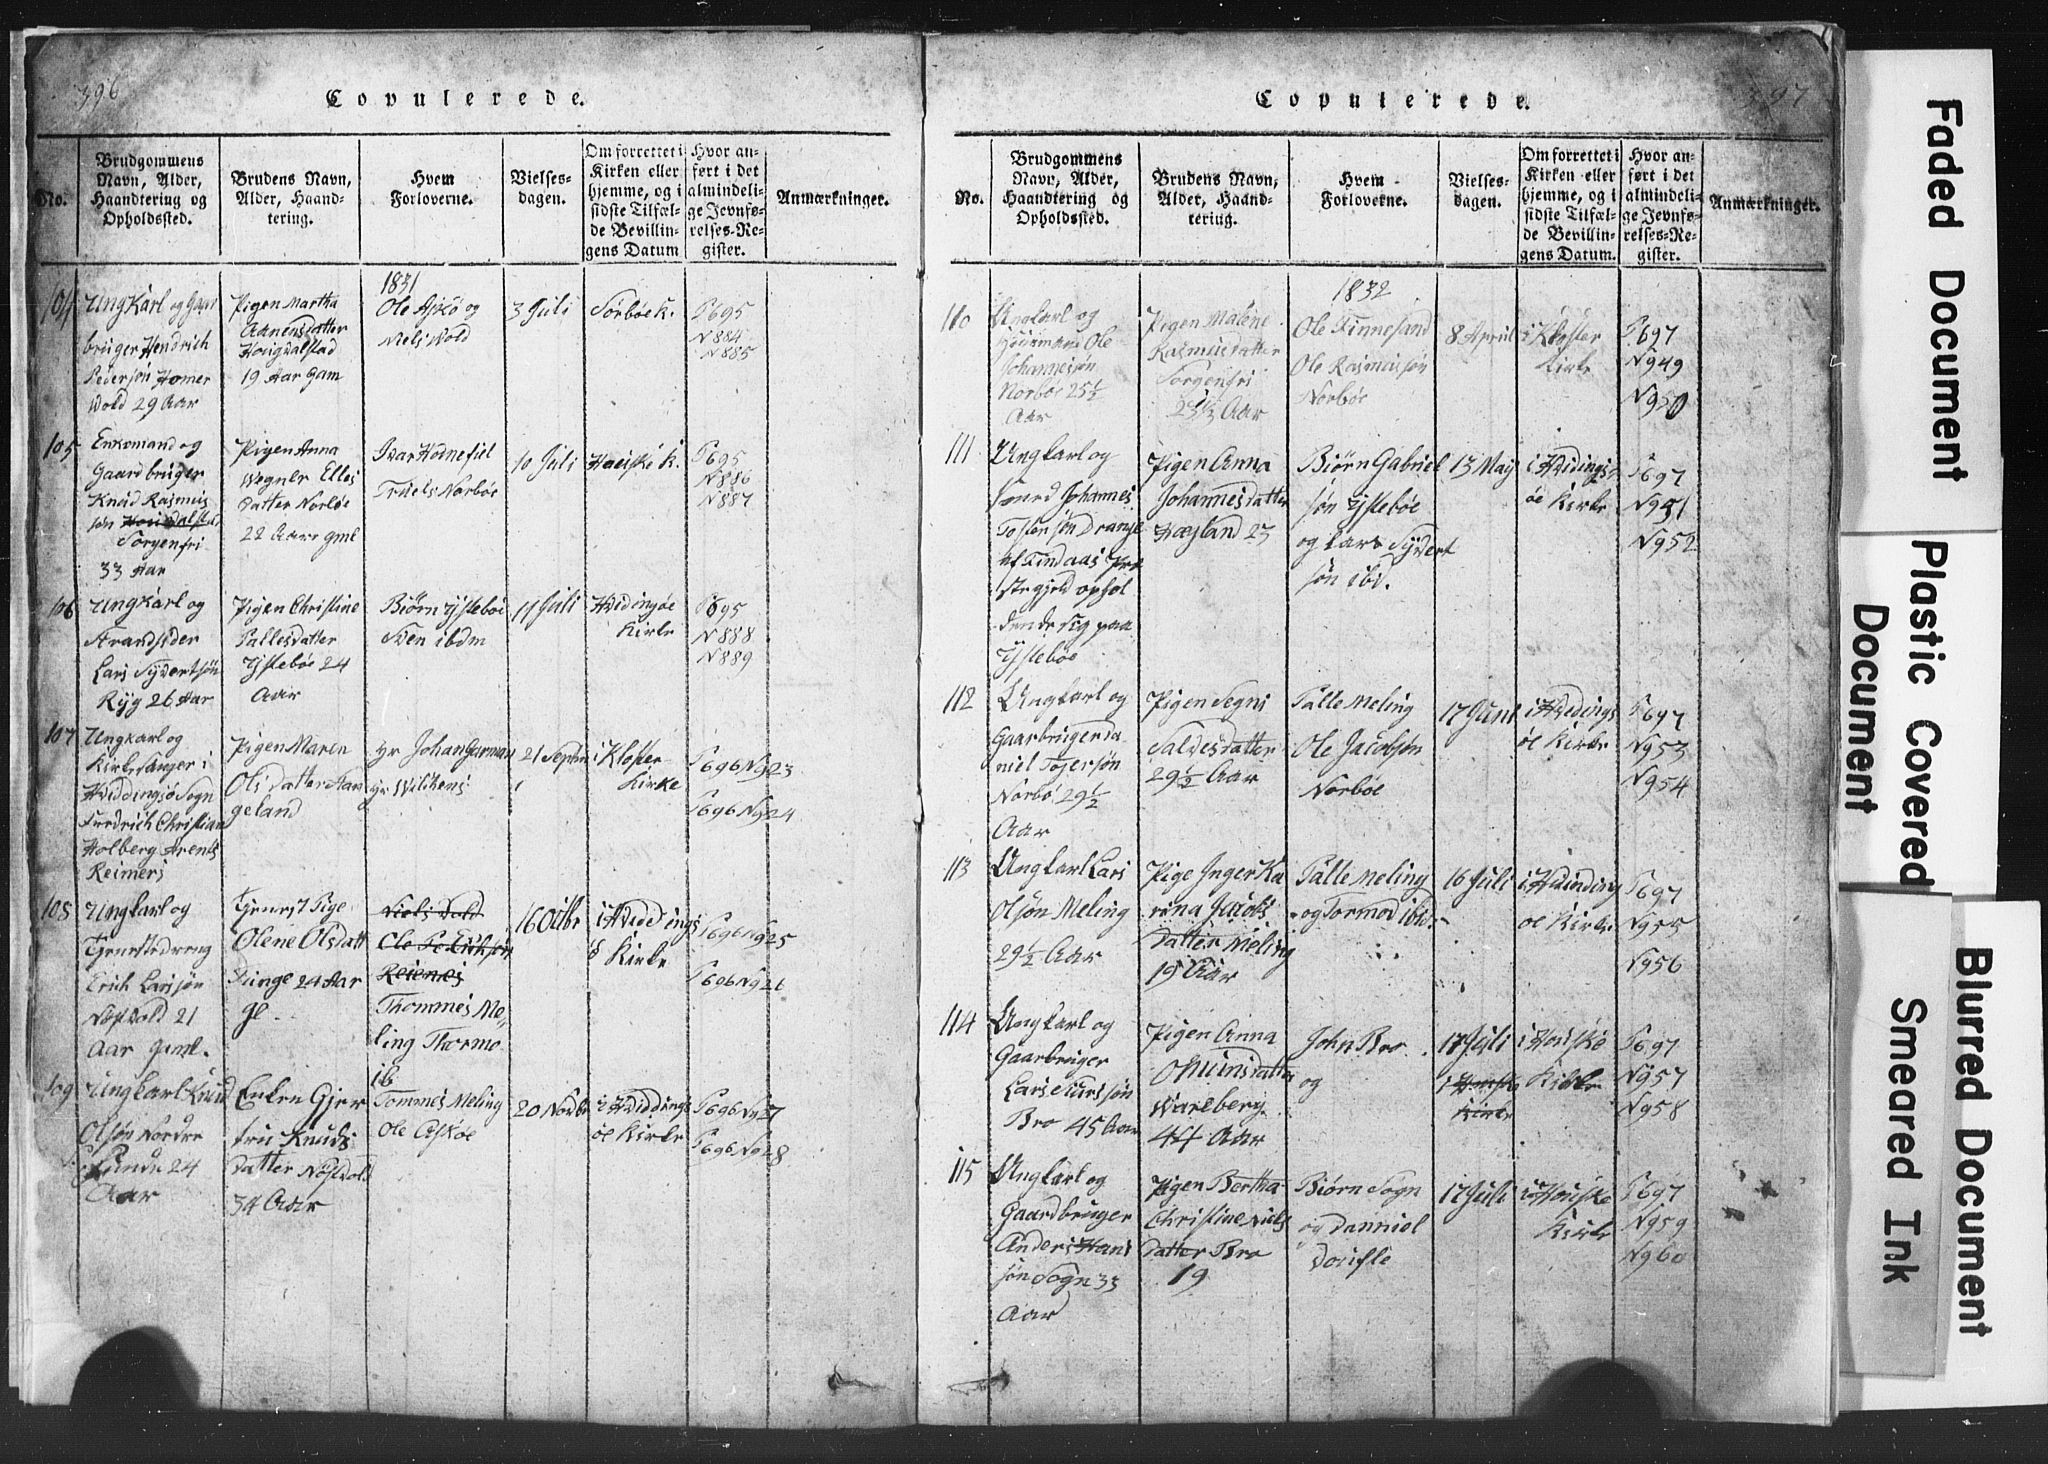 396
Copulerede.
No.
Brudgommens
Navn, Alder,
Haandtering og
Opholdssted.
Brudens Navn,
Alder, Haand-
tering.
Hvem
Forloverne.
Vielses-
dagen.
Om forrettet i
Kirken eller
hjemme, og i
sidste Tilfæl-
de Bevillin-
gens Datum
Hvor an-
ført i det
almindeli-
ge Jevnfø-
relses-Re-
gister.
Anmærkninger.
1831
104
Ungkarl og Gaar
bruger Hendrich
Pedersøn Homer
Wold 29 Aar
Pigen Martha
Aanensdatter
Hougvalstad
19 Aar Gam
Ole Askø og
Niels Wold
3 Juli
Sørbøe K.
P695
N884
N885
105
Enkemand og
Gaardbruger
Knud Rasmus
søn
Sorgenfri
33 Aar
Pigen Anna
Wegner Elles
datter Norbøe
22 Aar gml
Ivar Hodnefiel
Truels Norbøe
10 Juli
Hauske K.
P695
N886
N887
106
Ungkarl og
Strandsider
Lars Syvertsøn
Ryg 26 Aar
Pigen Christine
Pallesdatter
Ystebøe 24
Aar
Biørn Ystebøe
Sven ibdm
11 Juli
Hvidingøe
Kirke
P695
N888
N889
107
Ungkarl og
Kirkesanger i
Hviddingsø Sogn
Fredrich Christian
Holberg Arents
Reimers
Pigen Maren
Olsdatter Hau
geland
Hr Johan Garman
Hr Wilchens
21 Septm
i Kloster
Kirke
P696 N923
P696 N924
108
Ungkarl og
Tjenestedreng
Erich Larssøn
Nøstvold 21
Aar Gml.
Tjenest Pige
Olene Olsdatt
Tunge 24 Aar
gl
Niels Vold
Reienes
Thommes Me-
ling Thormo
ib
16 Octbr
i Hviddings
ö Kirke
P696 N925
P696 N926
109
Ungkarl Knud
Olsøn Nordre
Lunde 24
Aar
Enken Gjer
tru Knuds
datter Nøstvold
34 Aar
Tommes Meling
Ole Askøe
20 Novbr
i Hviddings
öe Kirke
P696 N927
P696 N928
397
Copulerede.
No.
Brudgommens
Navn, Alder,
Haandtering og
Opholdssted.
Brudens Navn,
Alder, Haand-
tering.
Hvem
Forloverne.
Vielses-
dagen.
Om forrettet i
Kirken eller
hjemme, og i
sidste Tilfæl-
de Bevillin-
gens Datum.
Hvor an-
ført i det
almindeli-
ge Jevnfø-
relses-Re-
gister.
Anmærkninger.
1832
110
Ungkarl og
Huusmand Ole
Johannessøn
Norbøe 25½
Aar
Pigen Malene
Rasmusdatter
Sorgenfri
23⅓ Aar
Ole Finnesand
Ole Rasmussøn
Norbøe
8 April
i Kloster
Kirke
P697
N949
N950
111
Ungkarl og
Johannes
Tostensøn Drange
af Findaas Præ
stegjeld ophol
dende sig paa
Ystebøe
Pigen Anna
Johannesdatter
Høgland 23
Biørn Gabriel
søn Ystebøe
og Lars Syvert
søn ibd.
13 May
i Hvidings
öe Kirke
P697
N951
N952
112
Ungkarl og
Gaarbruger Da
niel Tojersøn
Norbø 29½
Aar
Pigen Segni
Saldesdatter
29½ Aar
Palle Meling
Ole Jacobsøn
Norbøe
17 Juni
i Hvidings
öe Kirke
P697
N953
N954
113
Ungkarl Lars
Olsøn Meling
29½ Aar
Pige Inger Ka
rina Jacobs
datter Meling
19 Aar
Palle Meling
og Tormod ibid.
16 Juli
i Hvinding
öe Kirke
P697
N955
N956
114
Ungkarl og
Gaarbruger
Lars Siurssøn
Bro 45 Aar
Pigen Anna
Omunsdatter
Warlberg
44 Aar
John Bro
og
17 Juli
i Hauske
Kirke
i Hauske
Kirke
P697
N957
N958
115
Ungkarl og
Gaardbruger
Anders Hans
søn Sogn 33
Aar
Pigen Bertha
Christine Niels
datter Bro
19
Biørn Sogn
og Danniel
Dousle
17 Juli
i Hauske
Kirke
P697
N959
N960
Faded Document
Plastic Covered
Document
Blurred Document
Smeared Ink